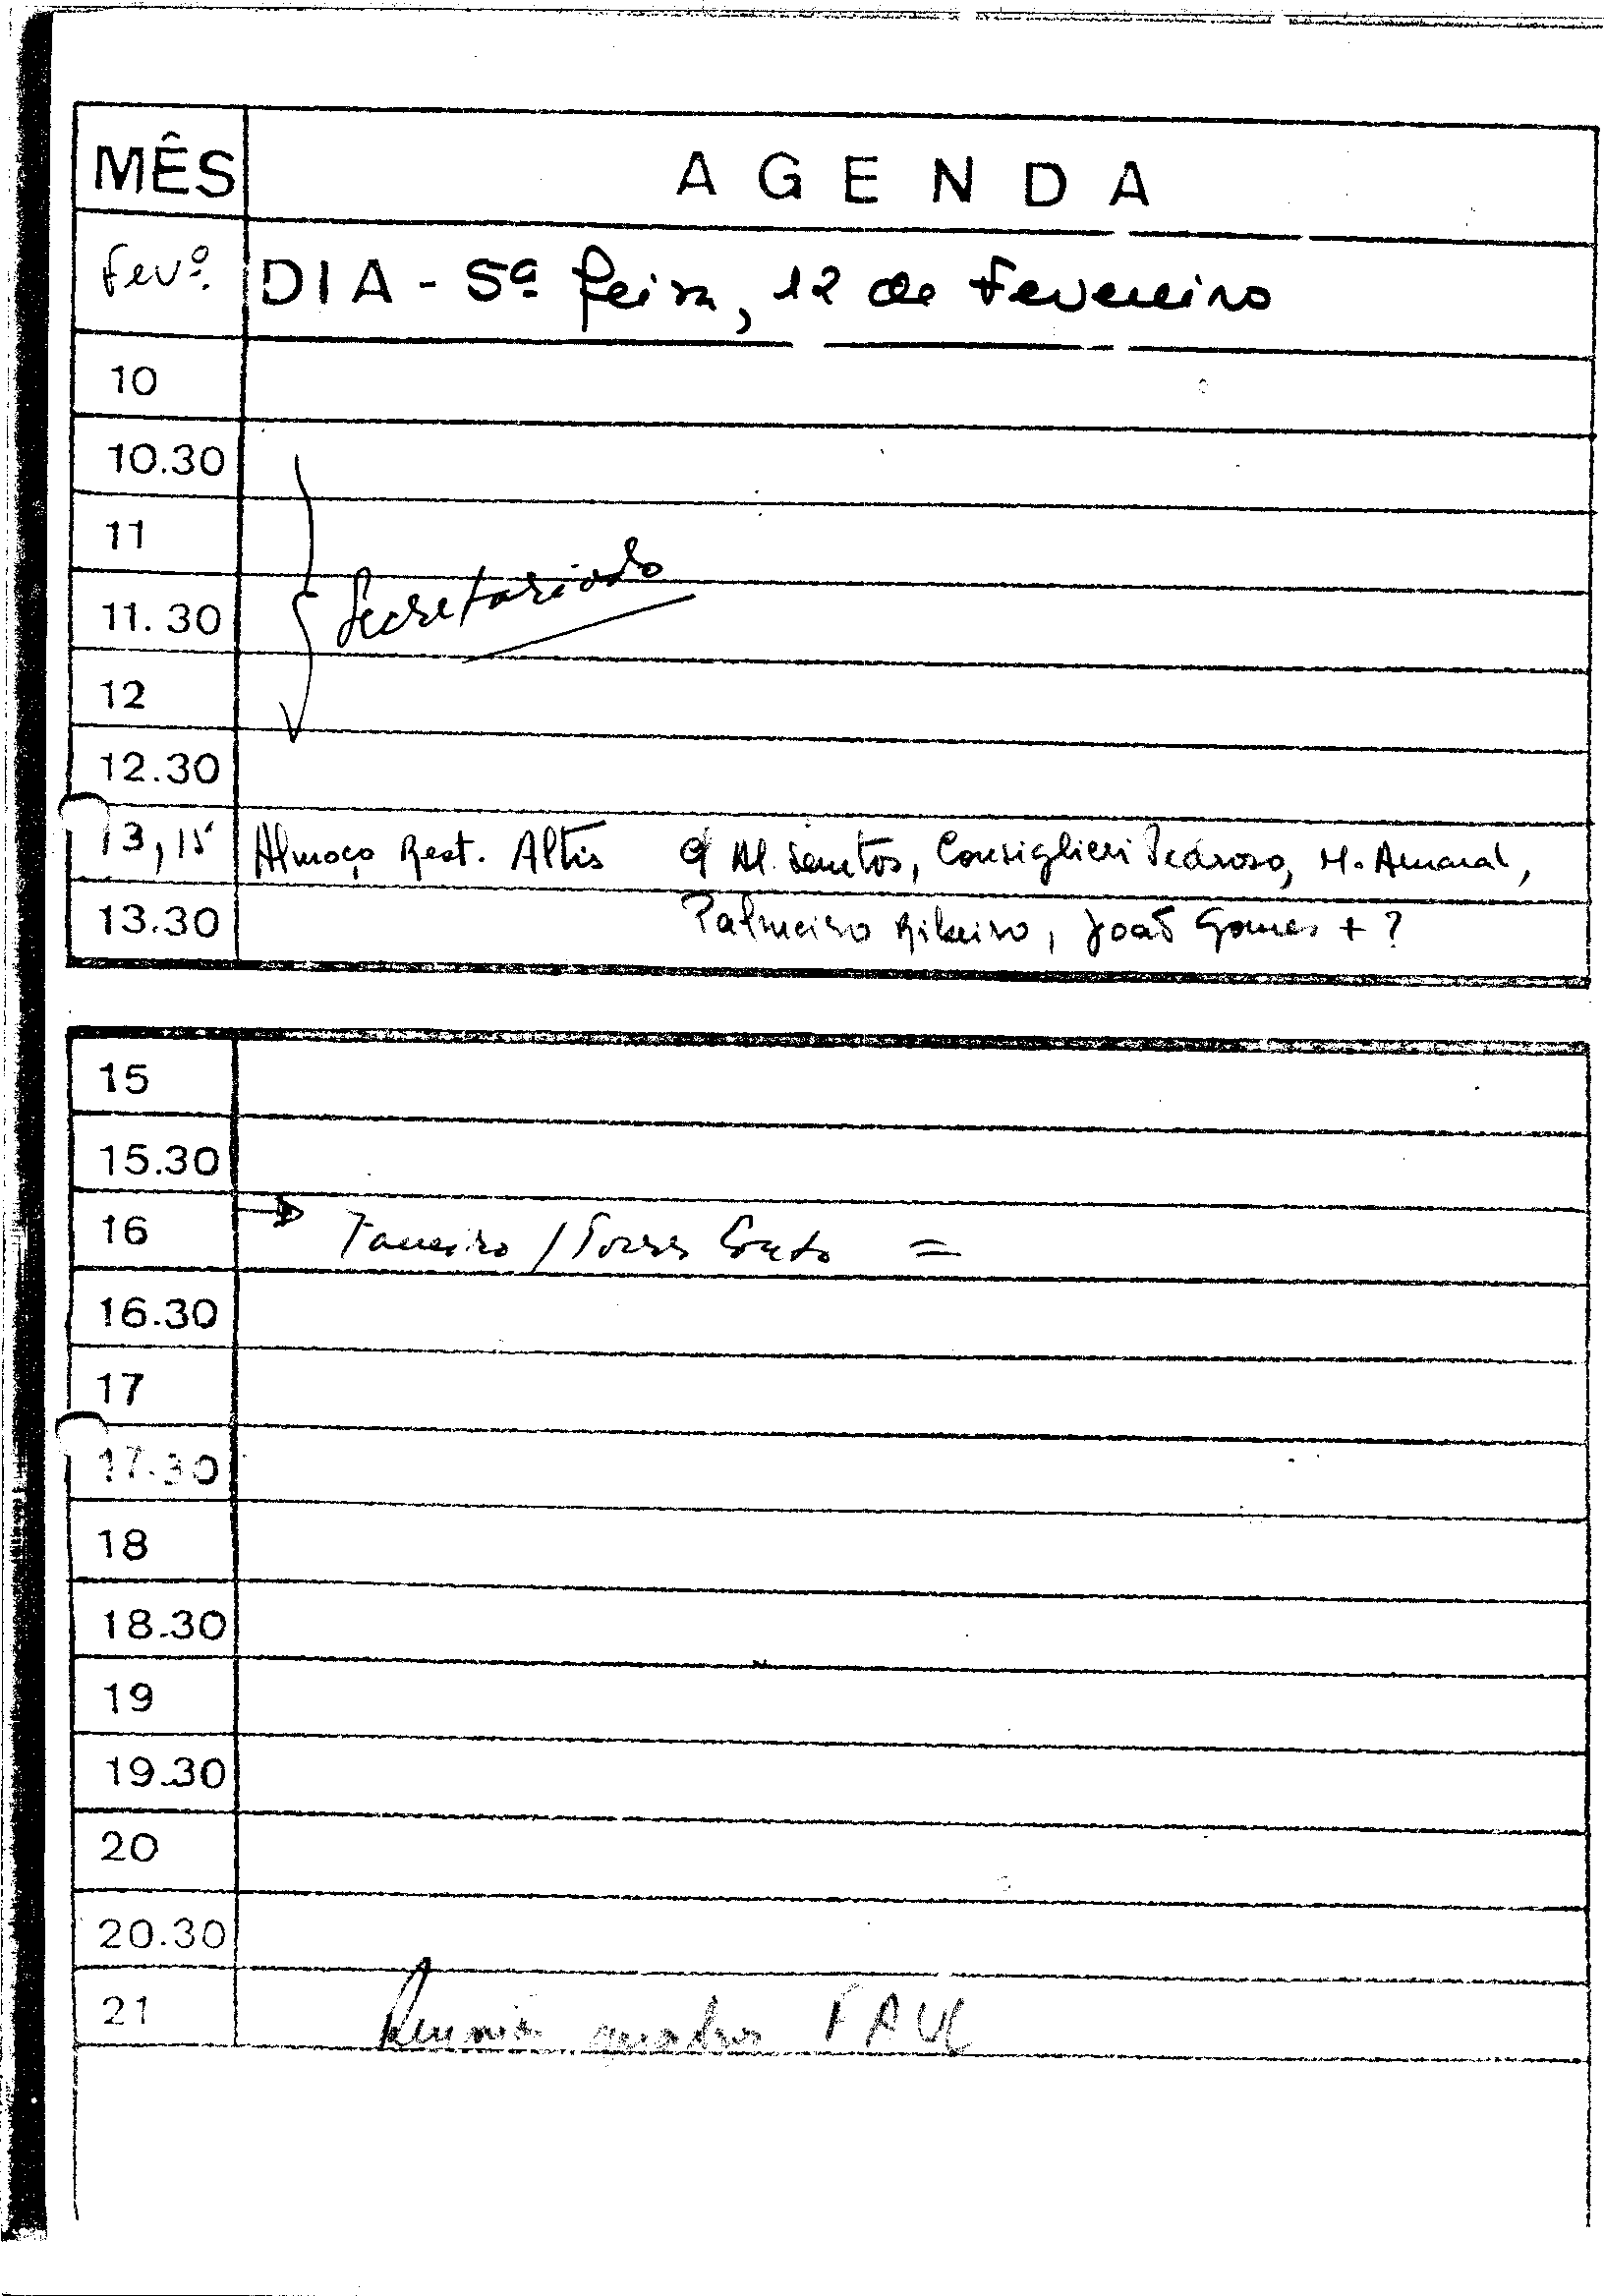 MÊS AGENDA
Fevº. DIA - 5ª feira, 12 de Fevereiro
10
10.30
11
Secretariado
11.30
12
12.30
13,15 Almoço Rest. Altis c/ Al. Santos, Consiglieri Pedroso, M. Amaral,
13.30 Palmeiro Ribeiro, João Gomes + ?
15
15.30
16 → / Torres Couto =
16.30
17
17.30
18
18.30
19
19.30
20
20.30
21 Reunião quadros FAUL